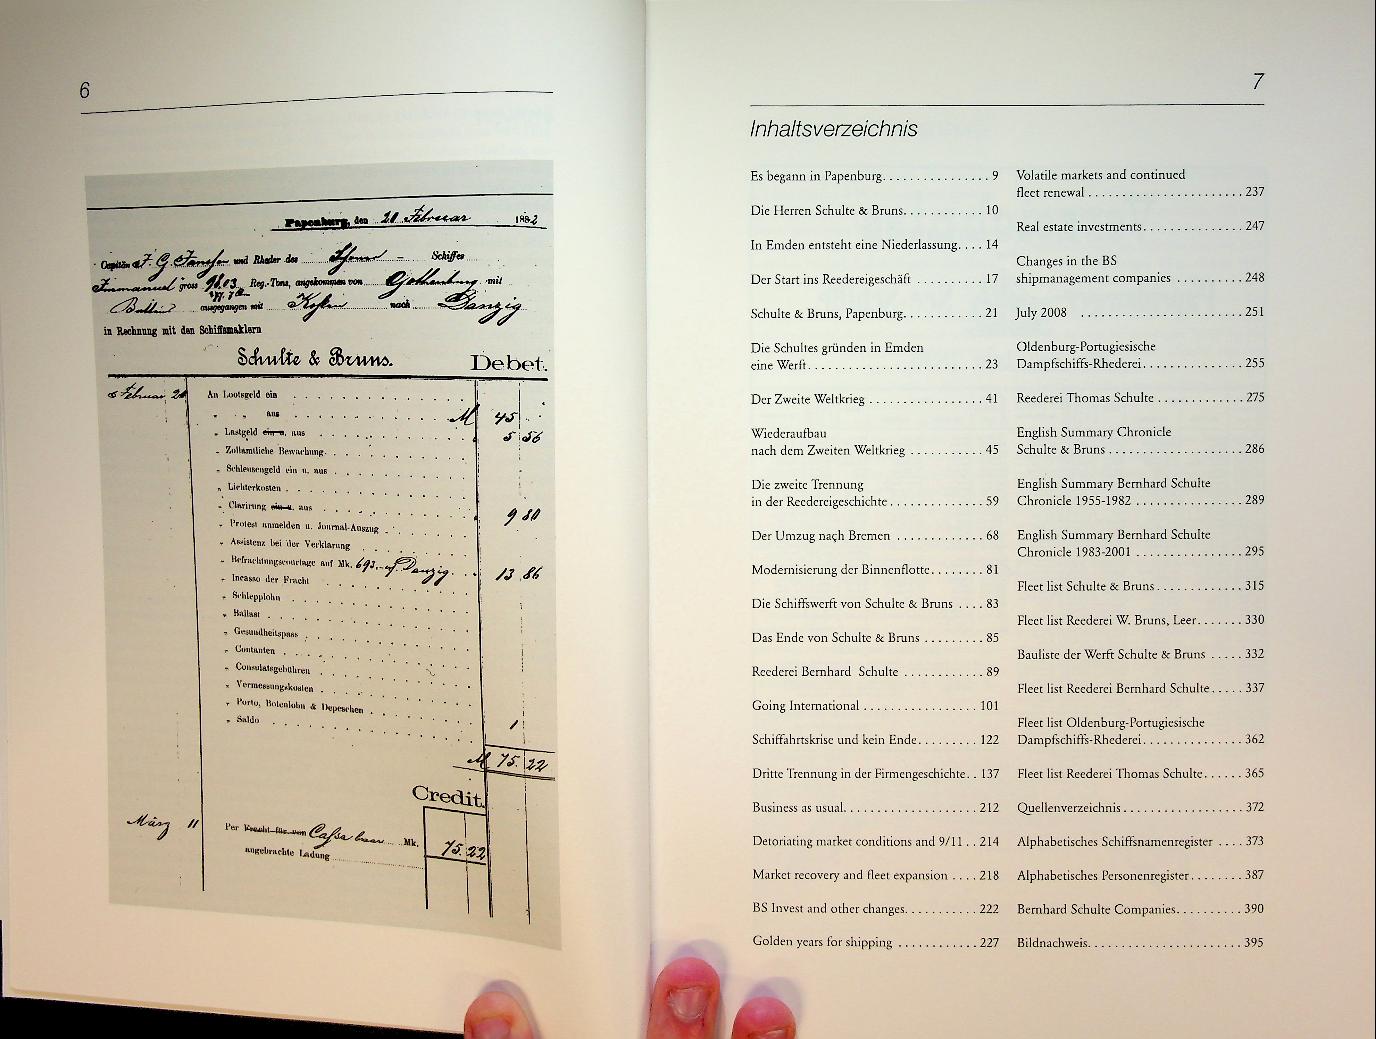 6
Papenburg, den 20 Februar 1882
Capitän F. G. und Rheder des Schiffes
Immanuel gross Reg.-Tons, angekommen von Gothenburg mit
Ballast ausgegangen mit nach Danzig
in Rechnung mit den Schiffsmaklern
Schulte & Bruns.
Debet.
Februar 20 An Lootsgeld ein
" " aus M 45
" Lastgeld ein u. aus 5 56
" Zollamtliche Bewachung
" Schleusengeld ein u. aus
" Lichterkosten
" Clarirung ein u. aus 9 80
" Protest anmelden u. Journal-Auszug
" Assistenz bei der Verklarung
" Befrachtungscourtage auf Mk. 693.- Danzig 13 86
" Incasso der Fracht
" Schlepplohn
" Ballast
" Gesundheitspass
" Contanten
" Consulatsgebühren
" Vermessungskosten
" Porto, Botenlohn & Depeschen 1
" Saldo
M 75.22
Credit.
März 11 Per Fracht für von Cassa Mk. 75.22
angebrachte Ladung
7
Inhaltsverzeichnis
Es begann in Papenburg. 9
Die Herren Schulte & Bruns. 10
In Emden entsteht eine Niederlassung. 14
Der Start ins Reedereigeschäft 17
Schulte & Bruns, Papenburg. 21
Die Schultes gründen in Emden
eine Werft. 23
Der Zweite Weltkrieg 41
Wiederaufbau
nach dem Zweiten Weltkrieg 45
Die zweite Trennung
in der Reedereigeschichte. 59
Der Umzug nach Bremen 68
Modernisierung der Binnenflotte. 81
Die Schiffswerft von Schulte & Bruns 83
Das Ende von Schulte & Bruns 85
Reederei Bernhard Schulte 89
Going International 101
Schiffahrtskrise und kein Ende. 122
Dritte Trennung in der Firmengeschichte. 137
Business as usual. 212
Detoriating market conditions and 9/11 214
Market recovery and fleet expansion 218
BS Invest and other changes. 222
Golden years for shipping 227
Volatile markets and continued
fleet renewal 237
Real estate investments. 247
Changes in the BS
shipmanagement companies 248
July 2008 251
Oldenburg-Portugiesische
Dampfschiffs-Rhederei. 255
Reederei Thomas Schulte 275
English Summary Chronicle
Schulte & Bruns 286
English Summary Bernhard Schulte
Chronicle 1955-1982 289
English Summary Bernhard Schulte
Chronicle 1983-2001 295
Fleet list Schulte & Bruns 315
Fleet list Reederei W. Bruns, Leer. 330
Bauliste der Werft Schulte & Bruns 332
Fleet list Reederei Bernhard Schulte 337
Fleet list Oldenburg-Portugiesische
Dampfschiffs-Rhederei. 362
Fleet list Reederei Thomas Schulte. 365
Quellenverzeichnis 372
Alphabetisches Schiffsnamenregister 373
Alphabetisches Personenregister. 387
Bernhard Schulte Companies. 390
Bildnachweis. 395